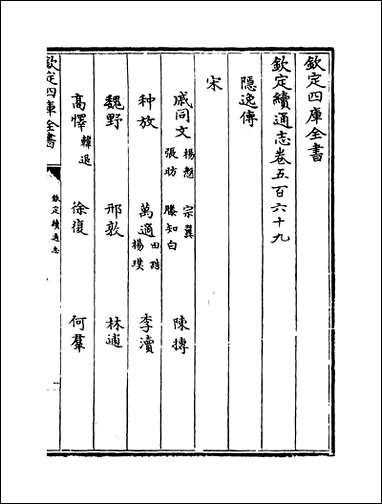 欽定四庫全書
欽定續通志卷五百六十九
隱逸傳
宋
戚同文 楊慤 張昉 宗翼 滕知白 陳摶
种放 萬適 田誥 楊璞 李瀆
魏野 邢敦 林逋
高懌 韓退 徐復 何羣
欽定四庫全書
欽定續通志
一